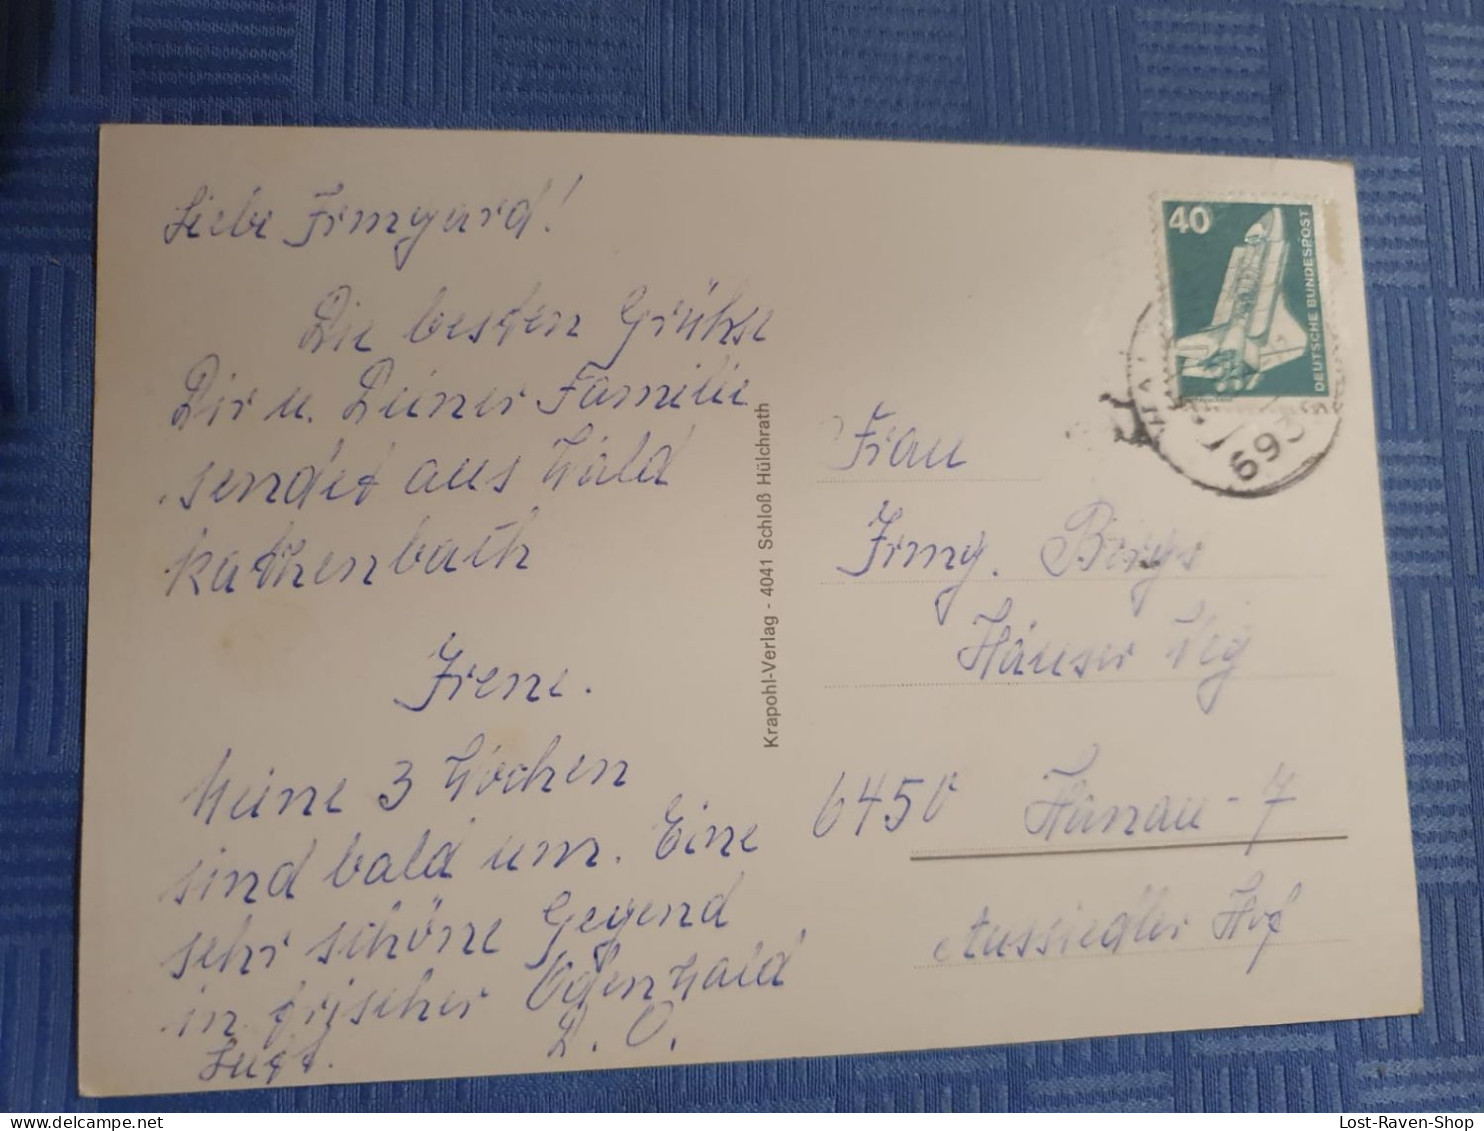 Liebe Irmgard!
Die besten Grühse
Dir u. Deiner Familie
sendet aus Wald
kathenbach
Irene.
Meine 3 Wochen
sind bald um. Eine
sehr schöne Gegend
in frischer Odenwald
Luft. D. O.
Krapohl-Verlag - 4041 Schloß Hülchrath
40
DEUTSCHE BUNDESPOST
693
Frau
Irmg.
Häuser Weg
6450 Hanau-7
Aussiedler Hof
Lost-Raven-Shop